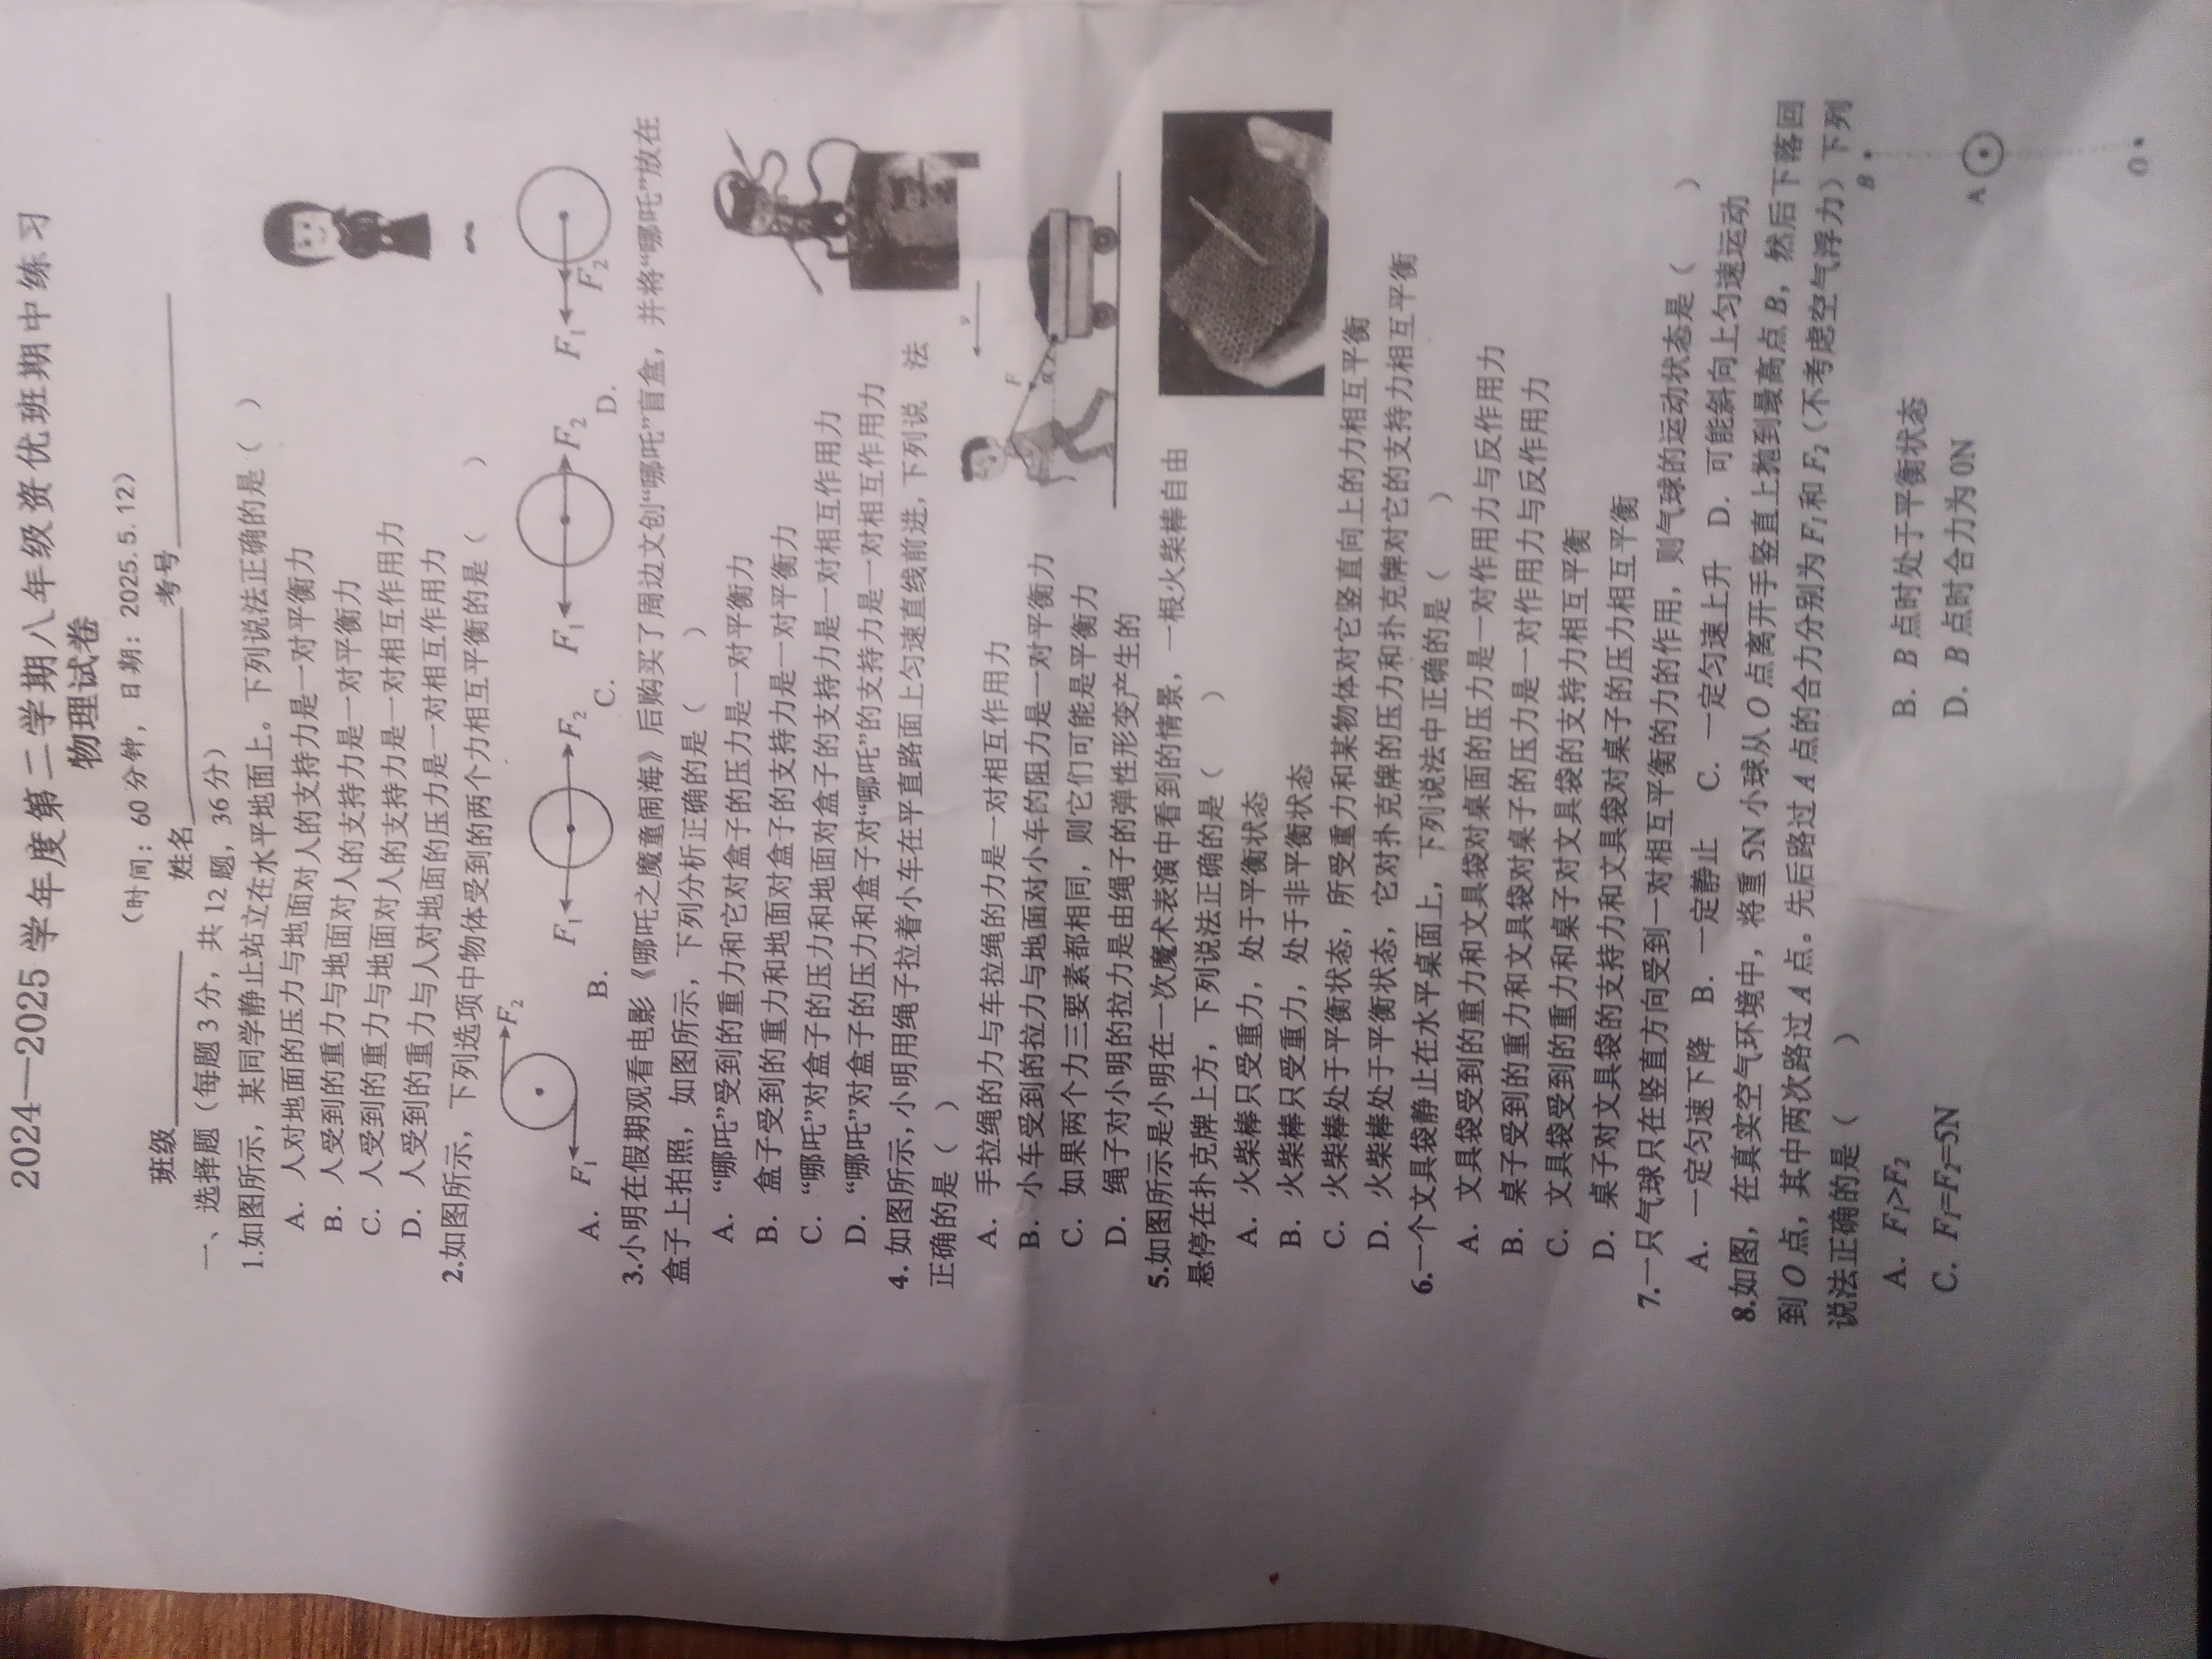 2024—2025 学年度第二学期八年级资优班期中练习
物理试卷
（时间：60 分钟，日期：2025.5.12）
班级 姓名 考号
一、选择题（每题 3 分，共 12 题，36 分）
1.如图所示，某同学静止站立在水平地面上。下列说法正确的是（ ）
A. 人对地面的压力与地面对人的支持力是一对平衡力
B. 人受到的重力与地面对人的支持力是一对平衡力
C. 人受到的重力与地面对人的支持力是一对相互作用力
D. 人受到的重力与人对地面的压力是一对相互作用力
2.如图所示，下列选项中物体受到的两个力相互平衡的是（ ）
F₁ F₂ F₁ F₂ F₁ F₂ F₁ F₂
A. B. C. D.
3.小明在假期观看电影《哪吒之魔童闹海》后购买了周边文创“哪吒”盲盒，并将“哪吒”放在
盒子上拍照，如图所示，下列分析正确的是（ ）
A. “哪吒”受到的重力和它对盒子的压力是一对平衡力
B. 盒子受到的重力和地面对盒子的支持力是一对平衡力
C. “哪吒”对盒子的压力和地面对盒子的支持力是一对相互作用力
D. “哪吒”对盒子的压力和盒子对“哪吒”的支持力是一对相互作用力
4. 如图所示，小明用绳子拉着小车在平直路面上匀速直线前进，下列说 法
正确的是（ ）
v
F
α
A. 手拉绳的力与车拉绳的力是一对相互作用力
B. 小车受到的拉力与地面对小车的阻力是一对平衡力
C. 如果两个力三要素都相同，则它们可能是平衡力
D. 绳子对小明的拉力是由绳子的弹性形变产生的
5.如图所示是小明在一次魔术表演中看到的情景，一根火柴棒自由
悬停在扑克牌上方，下列说法正确的是（ ）
A. 火柴棒只受重力，处于平衡状态
B. 火柴棒只受重力，处于非平衡状态
C. 火柴棒处于平衡状态，所受重力和某物体对它竖直向上的力相互平衡
D. 火柴棒处于平衡状态，它对扑克牌的压力和扑克牌对它的支持力相互平衡
6.一个文具袋静止在水平桌面上，下列说法中正确的是（ ）
A. 文具袋受到的重力和文具袋对桌面的压力是一对作用力与反作用力
B. 桌子受到的重力和文具袋对桌子的压力是一对作用力与反作用力
C. 文具袋受到的重力和桌子对文具袋的支持力相互平衡
D. 桌子对文具袋的支持力和文具袋对桌子的压力相互平衡
7.一只气球只在竖直方向受到一对相互平衡的力的作用，则气球的运动状态是（ ）
A. 一定匀速下降 B. 一定静止 C. 一定匀速上升 D. 可能斜向上匀速运动
8.如图，在真实空气环境中，将重 5N 小球从 O 点离开手竖直上抛到最高点 B，然后下落回
到 O 点，其中两次路过 A 点。先后路过 A 点的合力分别为 F₁ 和 F₂（不考虑空气浮力）下列
说法正确的是（ ）
A. F₁>F₂ B. B 点时处于平衡状态
C. F₁=F₂=5N D. B 点时合力为 0N
B
A
O